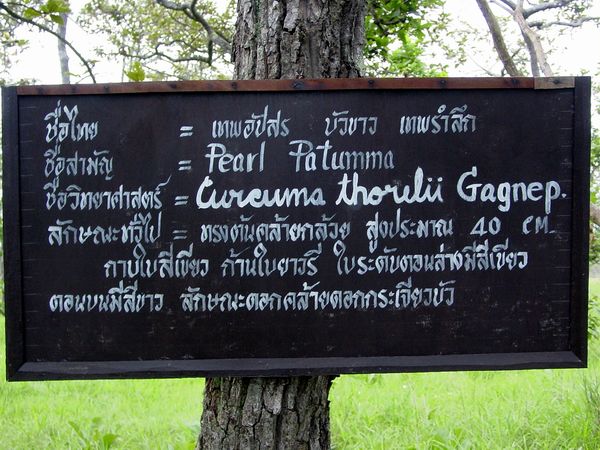 ชื่อไทย = เทพอัปสร บัวขาว เทพรำลึก
ชื่อสามัญ = Pearl Patumma
ชื่อวิทยาศาสตร์ = Curcuma thorelii Gagnep.
ลักษณะทั่วไป = ทรงต้นคล้ายกล้วย สูงประมาณ 40 CM.
กาบใบสีเขียว ก้านใบยาวรี ใบระดับตอนล่างมีสีเขียว
ตอนบนมีสีขาว ลักษณะดอกคล้ายดอกกระเจียวบัว